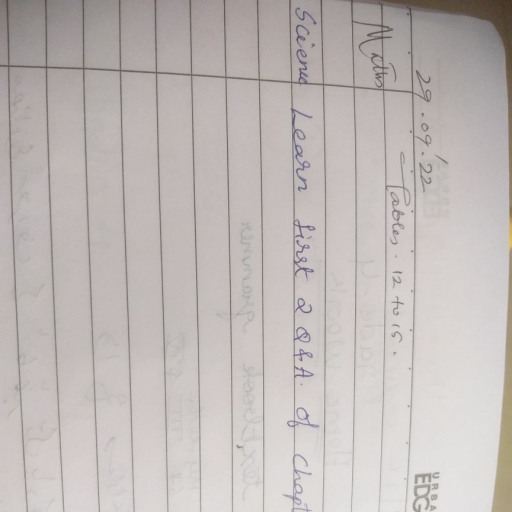 URBA
EDG
29.09.22
Maths Tables. 12 to 15.
Science Learn first 2 Q & A. of Chapt